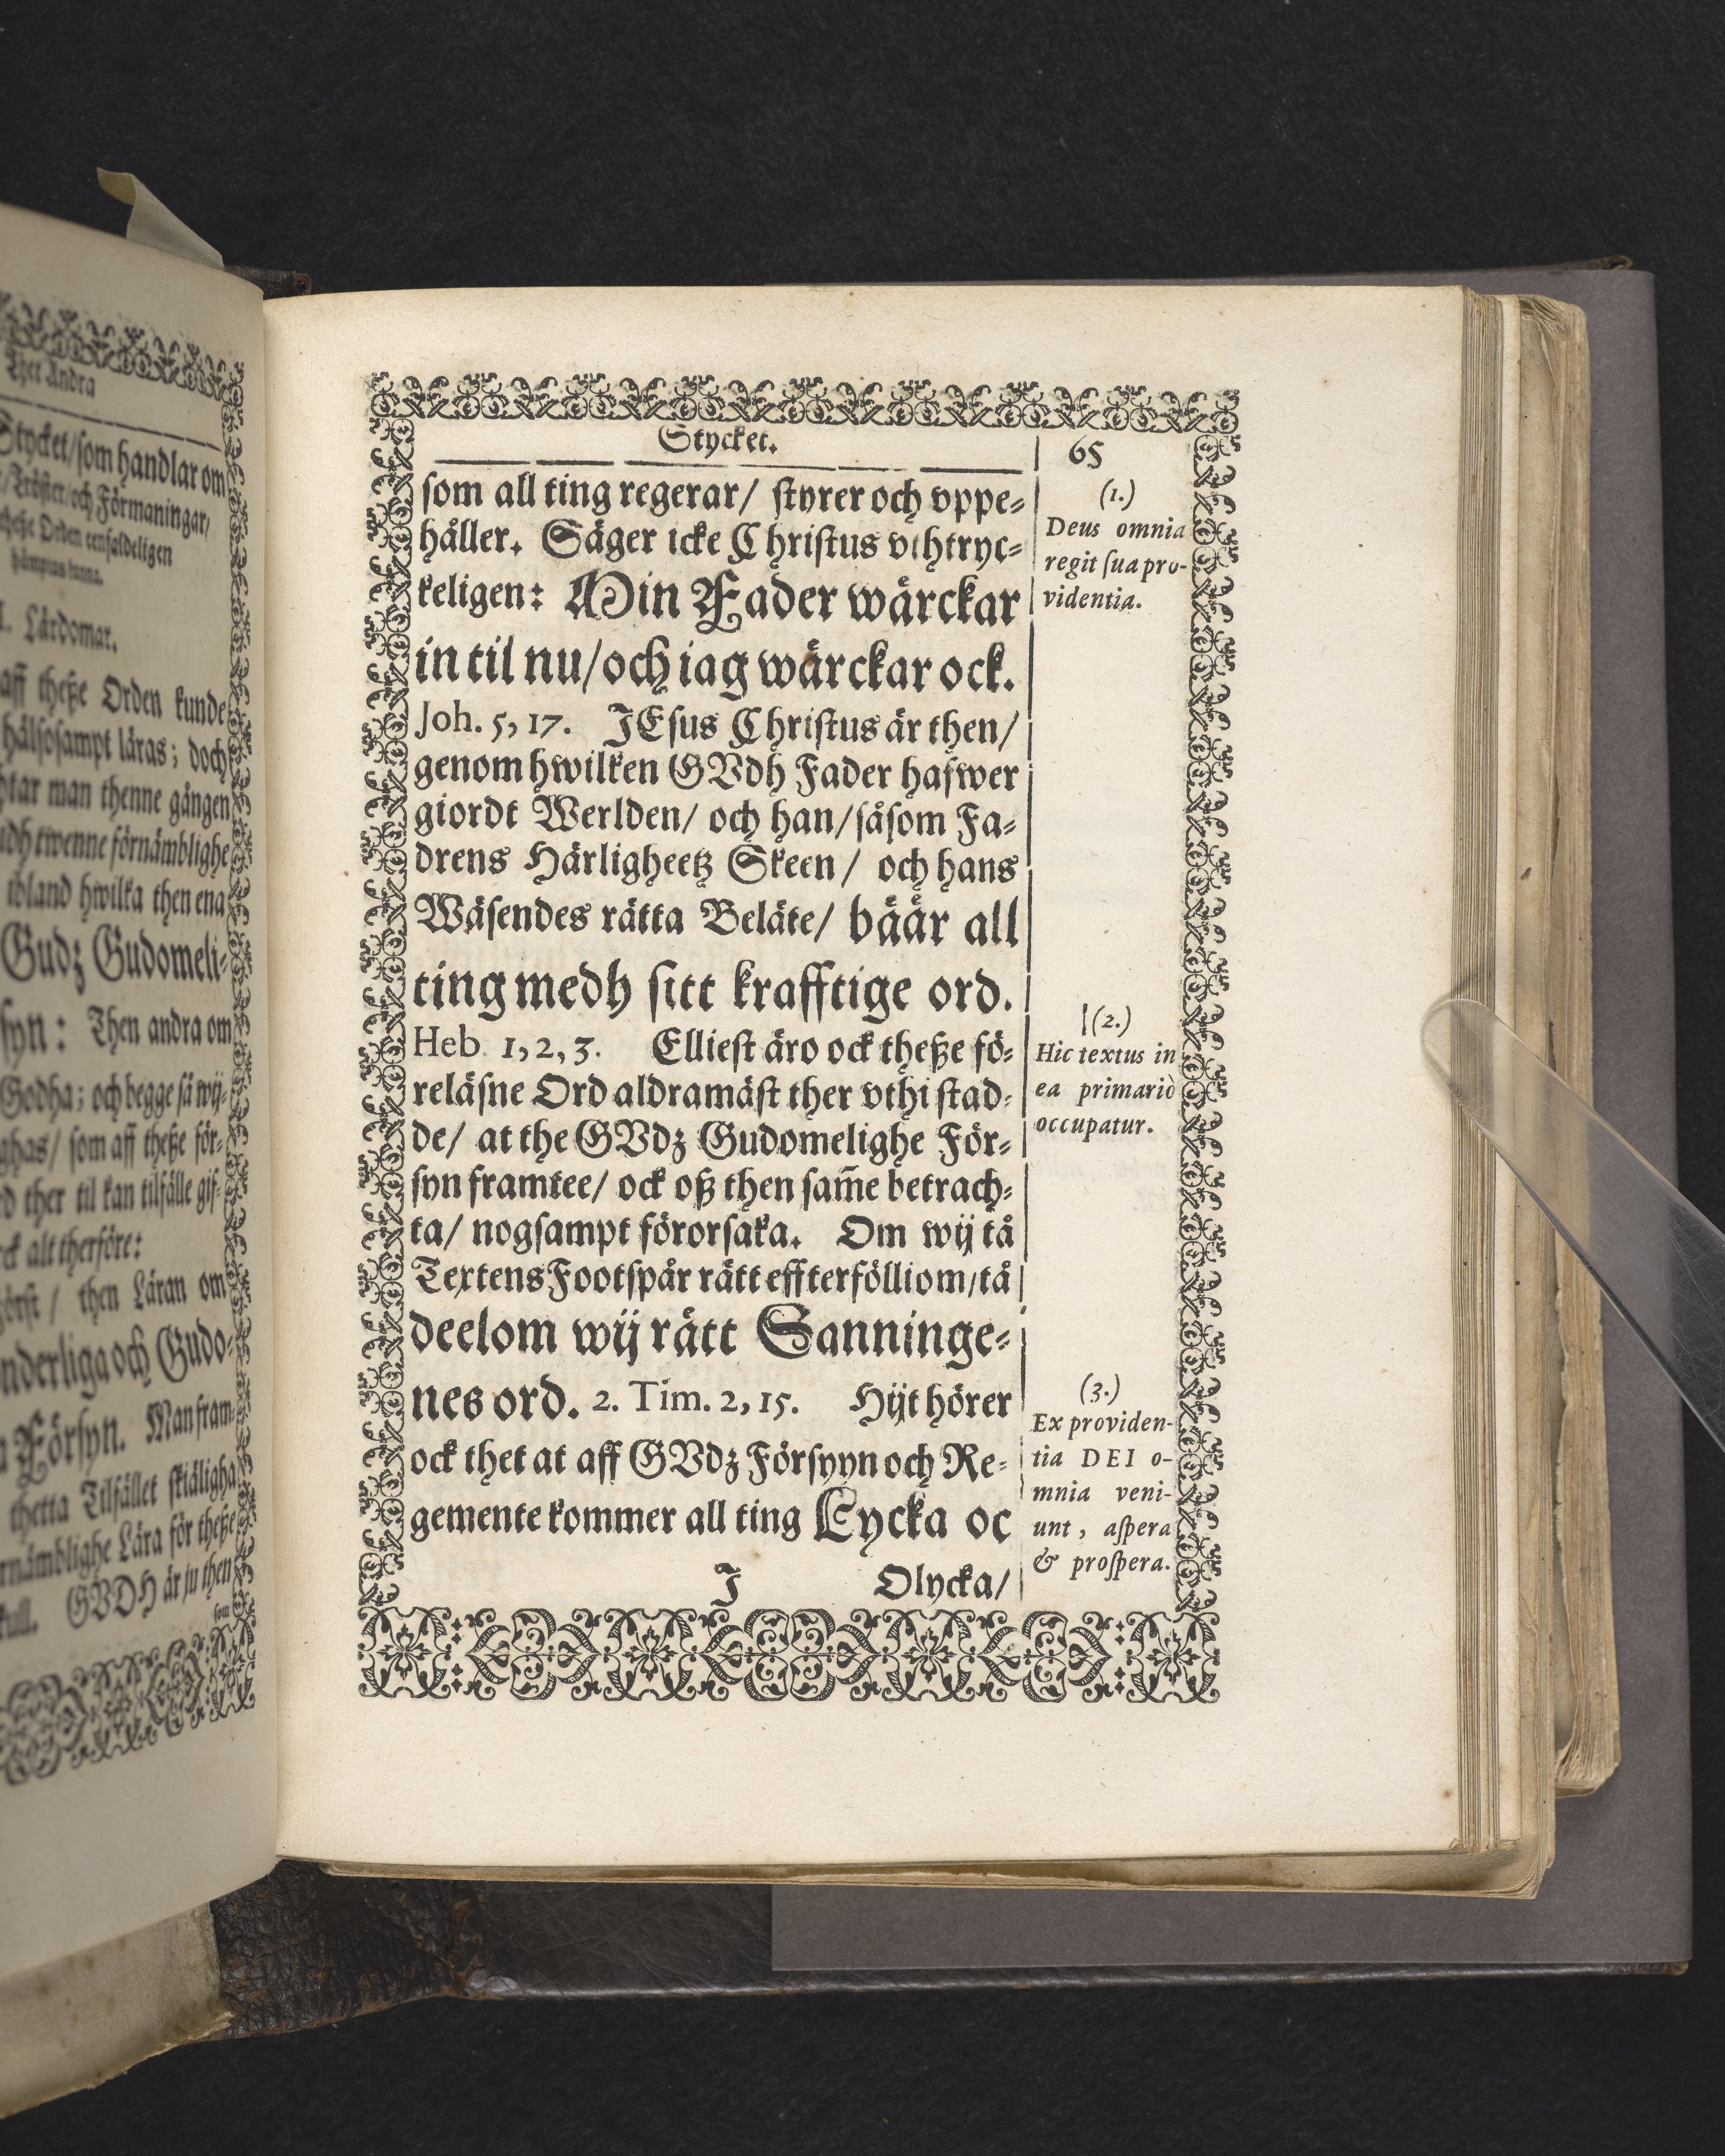 Thet Andra
Stycket/som handlar om
/Tröster/och Förmaningar/
theße Orden eenfaldeligen
hämptas kunna.
I. Lärdomar.
aff theße Orden kunde
hälsosampt läras; doch
man thenne gången
twenne förnämblighe
ibland hwilka then ena
Gudz Gudomeli-
syn: Then andra om
Godha; och begge så wij-
som aff theße för-
ther til kan tilfälle gif-
alt therföre:
then Läran om
och Gudo-
Försyn. Man fram-
thetta Tilfället skiäligha
Lära för theße
skull. GVDH är ju then
som
Stycket.
65
som all ting regerar/ styrer och vppe-
håller. Säger icke Christus vthtryc-
keligen: Min Fader wärckar
in til nu/och iag wärckar ock.
Joh. 5, 17. JEsus Christus är then/
genom hwilken GVdh Fader hafwer
giordt Werlden/ och han/såsom Fa-
drens Härligheetz Skeen/ och hans
Wäsendes rätta Beläte/ bäär all
ting medh sitt krafftige ord.
Heb 1, 2, 3. Elliest äro ock theße fö-
reläsne Ord aldramäst ther vthi stad-
de/ at the GVdz Gudomelighe För-
syn framtee/ ock oß then sam̃e betrach-
ta/ nogsampt förorsaka. Om wij tå
Textens Footspår rätt effterfölliom/tå
deelom wij rätt Sanninge-
nes ord. 2. Tim. 2, 15. Hijt hörer
ock thet at aff GVdz Försyyn och Re-
gemente kommer all ting Lycka oc
J Olycka/
(1.)
Deus omnia
regit sua pro-
videntia.
(2.)
Hic textus in
ea primariò
occupatur.
(3.)
Ex providen-
tia DEI o-
mnia veni-
unt, aspera
& prospera.